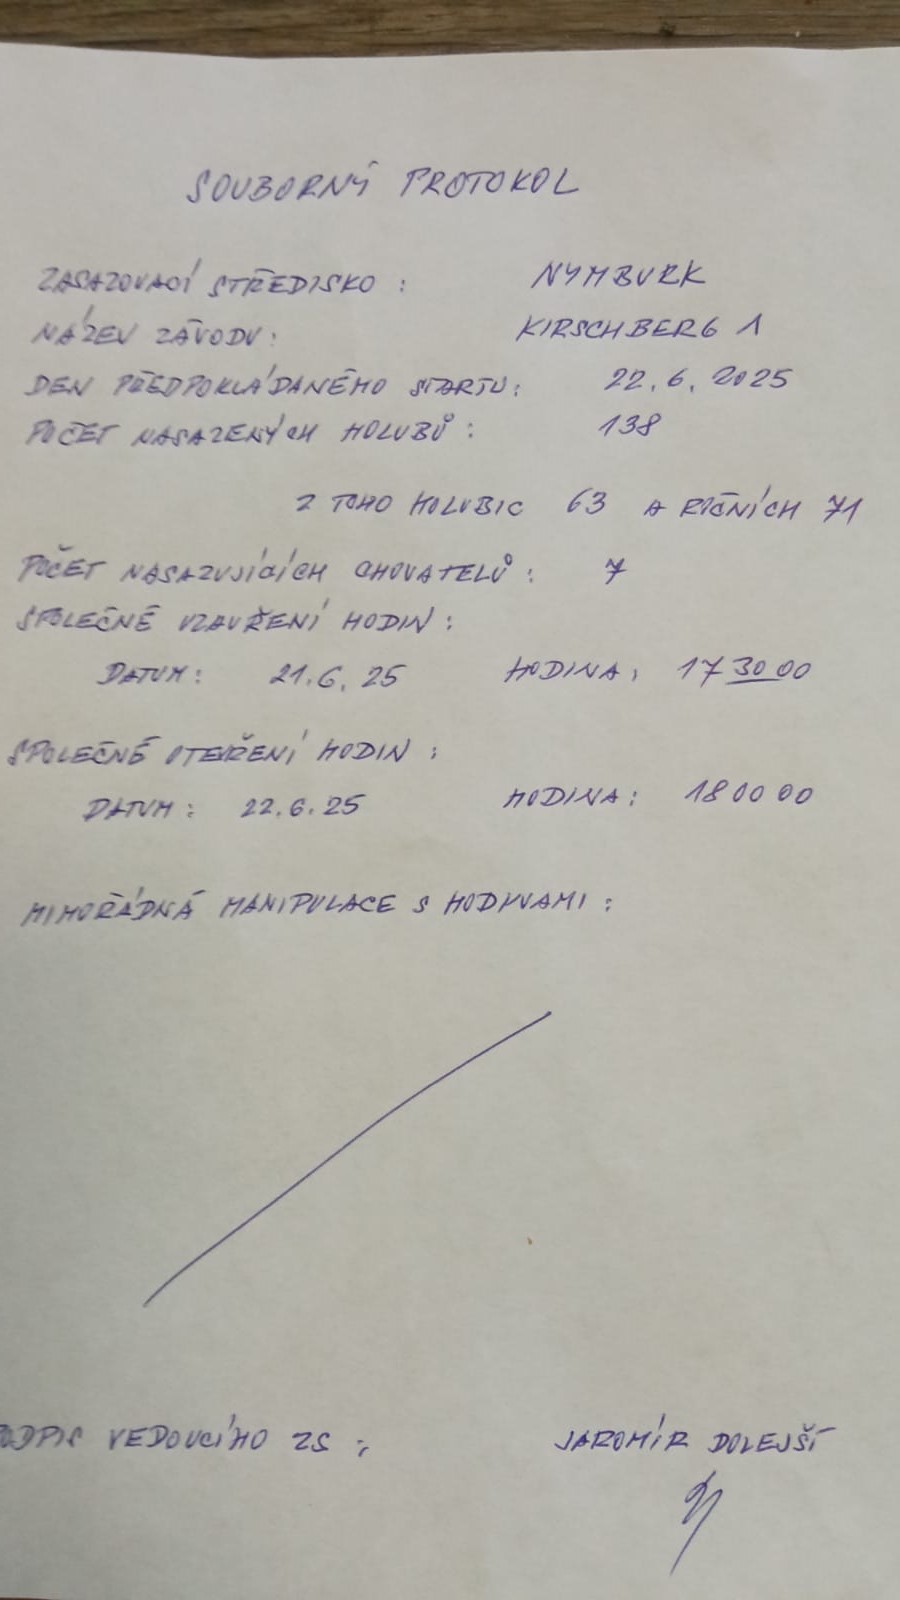 SOUBORNÝ PROTOKOL
ZASAZOVACÍ STŘEDISKO : NYMBURK
NÁZEV ZÁVODU : KIRSCHBERG 1
DEN PŘEDPOKLÁDANÉHO STARTU : 22.6.2025
POČET NASAZENÝCH HOLUBŮ : 138
Z TOHO HOLUBIC 63 A ROČNÍCH 71
POČET NASAZUJÍCÍCH CHOVATELŮ : 7
SPOLEČNÉ UZAVŘENÍ HODIN :
DATUM : 21.6.25 HODINA : 17 30 00
SPOLEČNÉ OTEVŘENÍ HODIN :
DATUM : 22.6.25 HODINA : 18 00 00
MIMOŘÁDNÁ MANIPULACE S HODINAMI :
PODPIS VEDOUCÍHO ZS : JAROMÍR DOLEJŠÍ